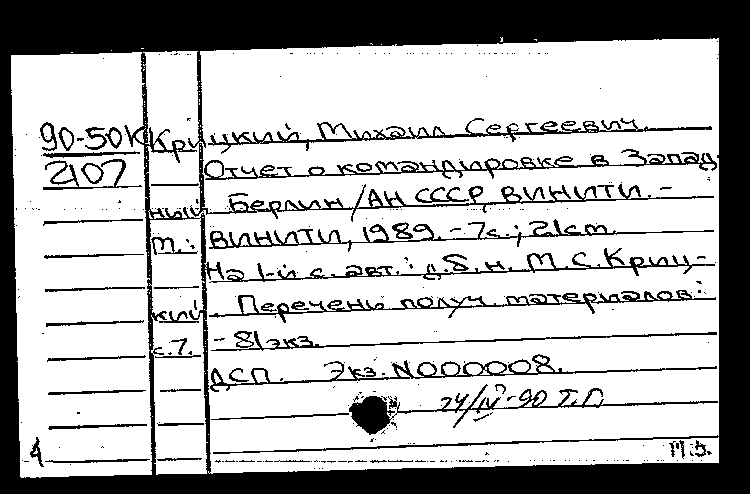 90-50К Крицкий, Михаил Сергеевич.
2107 Отчет о командировке в Запад-
ный Берлин / АН СССР, ВИНИТИ. -
М.: ВИНИТИ, 1989. - 7с.; 21см.
На 1-й с. авт.: д.б.н. М.С.Криц-
кий. Перечень получ. материалов:
с.7. - 81экз.
ДСП. Экз. N000008.
24/IV-90 Т.П.
4 М.Б.